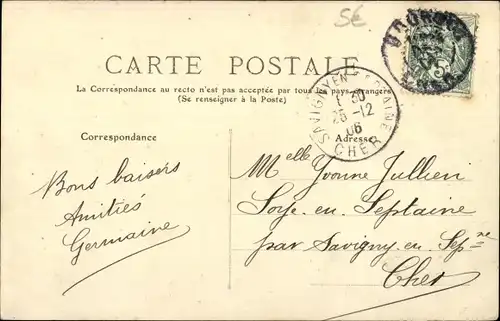 5E
BOURGES
5
CARTE POSTALE
La Correspondance au recto n'est pas acceptée par tous les pays étrangers
(Se renseigner à la Poste)
SAVIGNY EN SEPTAINE
1 30
25 - 12
06
CHER
Correspondance
Adresse
Bons baisers
Amitiés
Germaine
Melle Yvonne Jullien
Soye-en-Septaine
par Savigny-en-Sepne
Cher